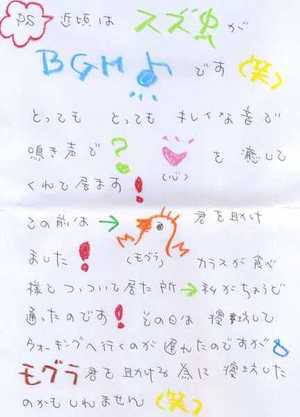 PS 近頃は スズ虫が
BGM♪です(笑)
とっても とっても キレイな音で
鳴き声で? を 癒して
くれて居ます! (心)
この前は→ 君を助け
ました! (モグラ) カラスが食べ
様とつついて居た所→私がちょうど
通ったのです! その日は 寝坊して
ウォーキングへ行くのが遅れたのですが
モグラ君を助ける為に 寝坊した
のかもしれません(笑)